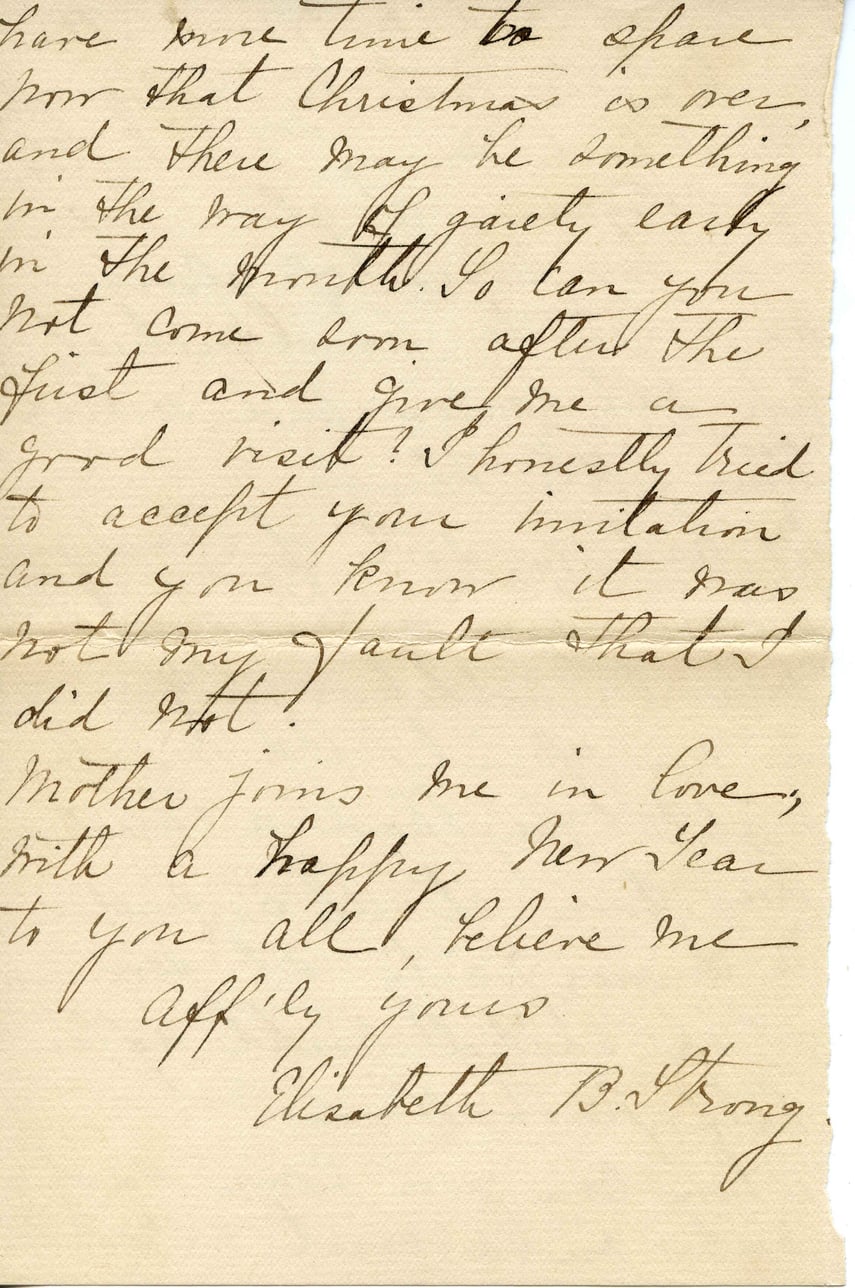 have more time to spare
now that Christmas is over,
and there may be something
in the way of gaiety early
in the month. So can you
not come soon after the
first and give me a
good visit? I honestly tried
to accept your invitation
and you know it was
not my fault that I
did not.
Mother joins me in love,
with a happy New Year
to you all, believe me
Aff'ly yours
Elisabeth B. Strong.